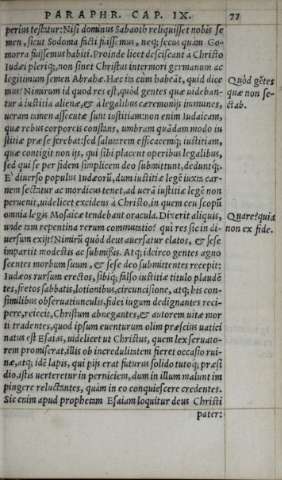 PARAPHR. CAP. IX. 77
perius testatur: Nisi dominus Sabaoth reliquisset nobis se
men, sicut Sodoma facti fuissemus, neq; secus quàm Go-
morra fuissemus habiti. Proinde licet desciscant à Christo
Iudæi pleriq;, non sinet Christus intermori germanum ac
legitimum semen Abrahæ. Hæc in cum habeāt, quid dice
mus? Nimirum id quod res est, quòd gentes quæ uidebā-
tur à iustitia alienæ, & à legalibus cæremonijs immunes,
ueram tamen assecutæ sunt iustitiam: non enim Iudaicam,
quæ rebus corporeis constans, umbram quādam modo iu
stitiæ præ se ferebat: sed salutarem efficacemq; iustitiam,
quæ contigit non ijs, qui sibi placent operibus legalibus,
sed qui se per fidem simplicem deo submittunt, deduntq́;.
E' diuerso populus Iudæorū, dum iustitiæ legē iuxta car-
nem sectatur ac mordicus tenet, ad uerā iustitiæ legē non
peruenit, uidelicet excidens à Christo, in quem ceu scopū
omnia legis Mosaicæ tendebant oracula. Dixerit aliquis,
unde tam repentina rerum commutatio? qui res sic in di-
uersum exijt? Nimirū quòd deus auersatur elatos, & sese
impartit modestis ac submissis. Atq; idcirco gentes agno
scentes morbum suum, & sese deo submittentes recepit:
Iudæos rursum erectos, sibiq; falso iustitiæ titulo plaudē
tes, fretos sabbatis, lotionibus, circuncisione, atq; his con-
similibus obseruatiunculis, fidei iugum dedignantes reci-
pere, reiecit, Christum abnegantes, & autorem uitæ mor
ti tradentes, quod ipsum euenturum olim præscius uatici
natus est Esaias, uidelicet ut Christus, quem lex seruato-
rem promiserat, illis ob incredulitatem fieret occasio rui-
næ, atq; idē lapis, qui pijs erat futurus solido tutoq; præsi
dio, istis uerteretur in perniciem, dum in illum malunt im
pingere reluctantes, quàm in eo conquiescere credentes.
Sic enim apud prophetam Esaiam loquitur deus Christi
pater:
Quòd gētes
quæ non se-
ctab.
Quare? quia
non ex fide.